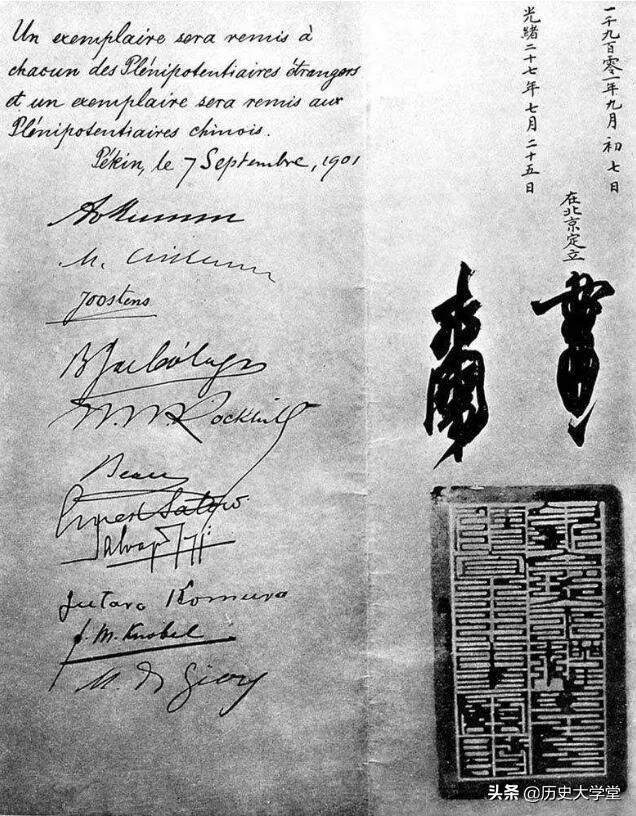 Un exemplaire sera remis à
chacun des Plénipotentiaires étrangers
et un exemplaire sera remis aux
Plénipotentiaires chinois.
Pékin, le 7 Septembre, 1901
Joostens
W. W. Rockhill
Beau
Ernest Satow
Salvago Raggi
Jutaro Komura
F. M. Knobel
M. de Giers
一千九百零一年九月初七日
光緒二十七年七月二十五日
在北京定立
头条 @历史大学堂